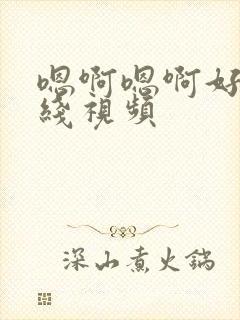 嗯啊嗯啊好
綫視頻
深山煮火鍋